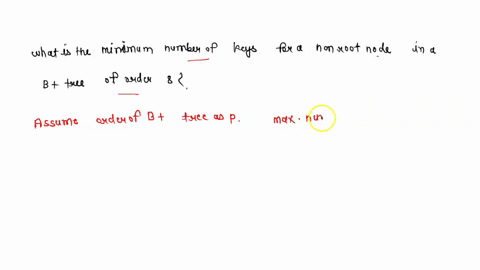 what is the minimum number of keys for a non root node in a
B+ tree of order 8 {.
Assume order of B+ tree as p. max. num